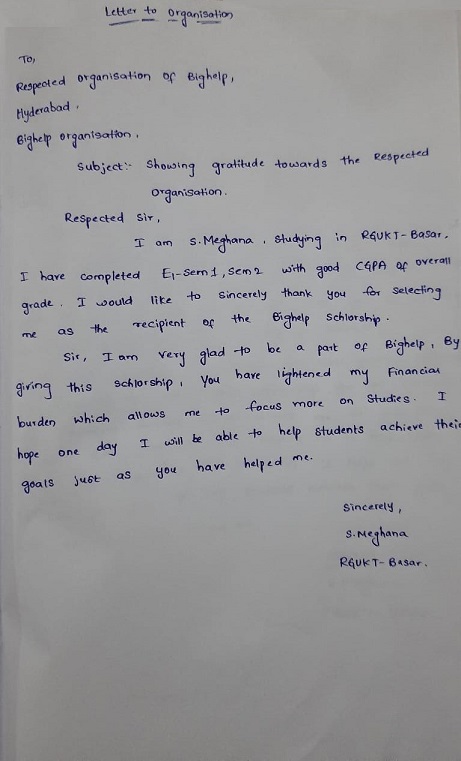 Letter to Organisation
To,
Respected organisation of Bighelp,
Hyderabad.
Bighelp organisation.
Subject:- Showing gratitude towards the Respected
Organisation.
Respected Sir,
I am S.Meghana, Studying in RGUKT-Basar.
I have completed E1-Sem1, Sem2 with good CGPA of overall
grade. I would like to sincerely thank you for selecting
me as the recipient of the Bighelp Schlorship.
Sir, I am very glad to be a part of Bighelp, By
giving this schlorship, You have lightened my Financial
burden which allows me to focus more on Studies. I
hope one day I will be able to help students achieve their
goals just as you have helped me.
Sincerely,
S.Meghana
RGUKT-Basar.